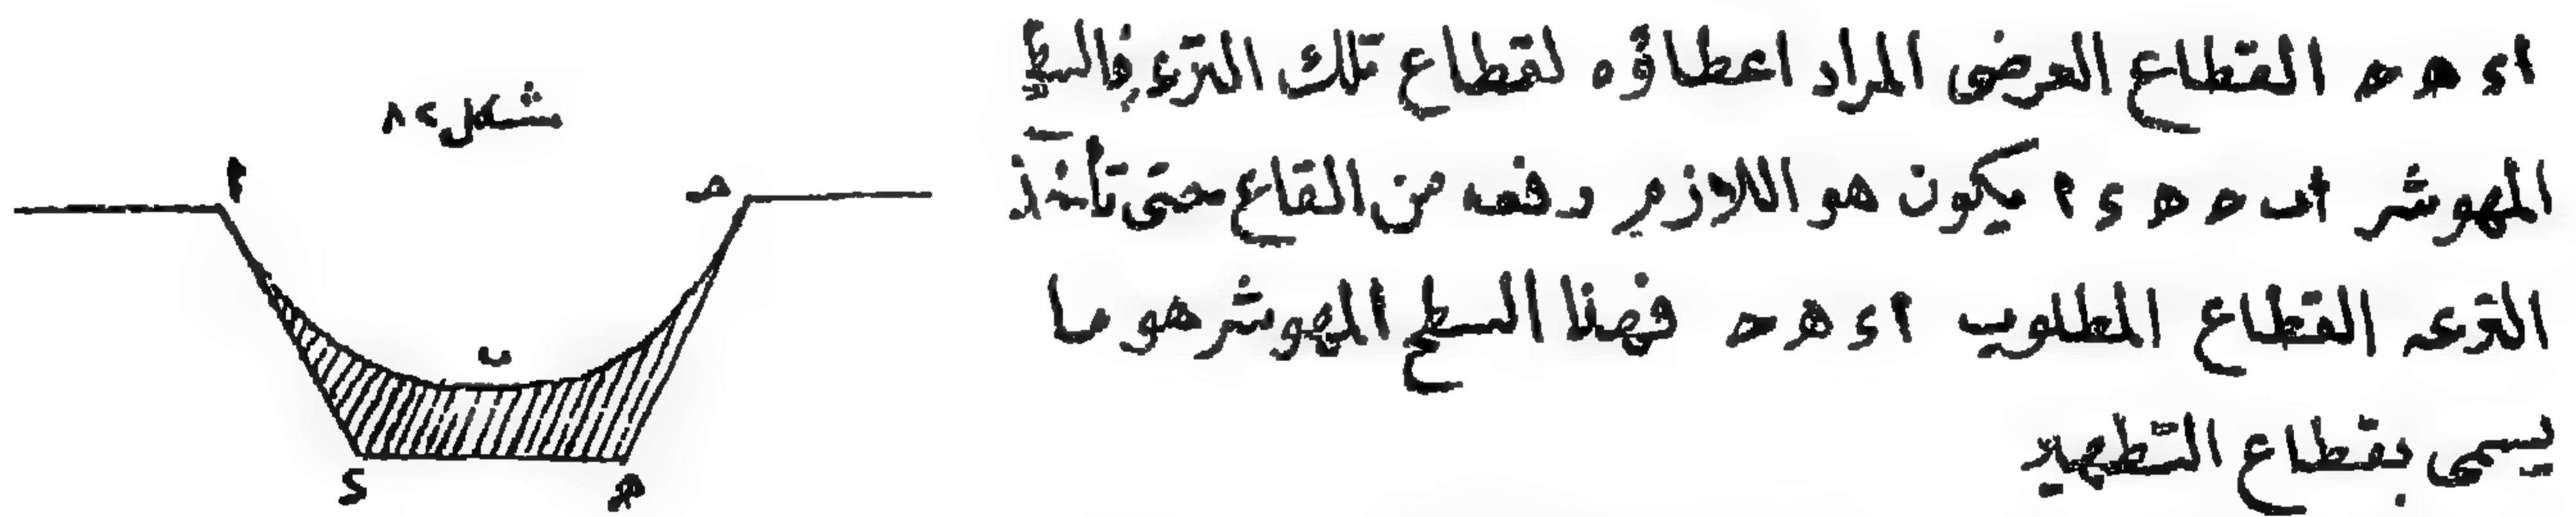 ا ء ه ح القطاع العرضى المراد اعطاؤه لقطاع تلك الترعه فالسطح
المهوشر ا ب ح ه ء ا يكون هو اللازم رفعه من القاع حتى تأخذ
الترعه القطاع المطلوب ا ء ه ح فهنا السطح المهوشر هو ما
يسمى بقطاع التطهير
شكل ٢٨
ا
ح
ب
ء
ه